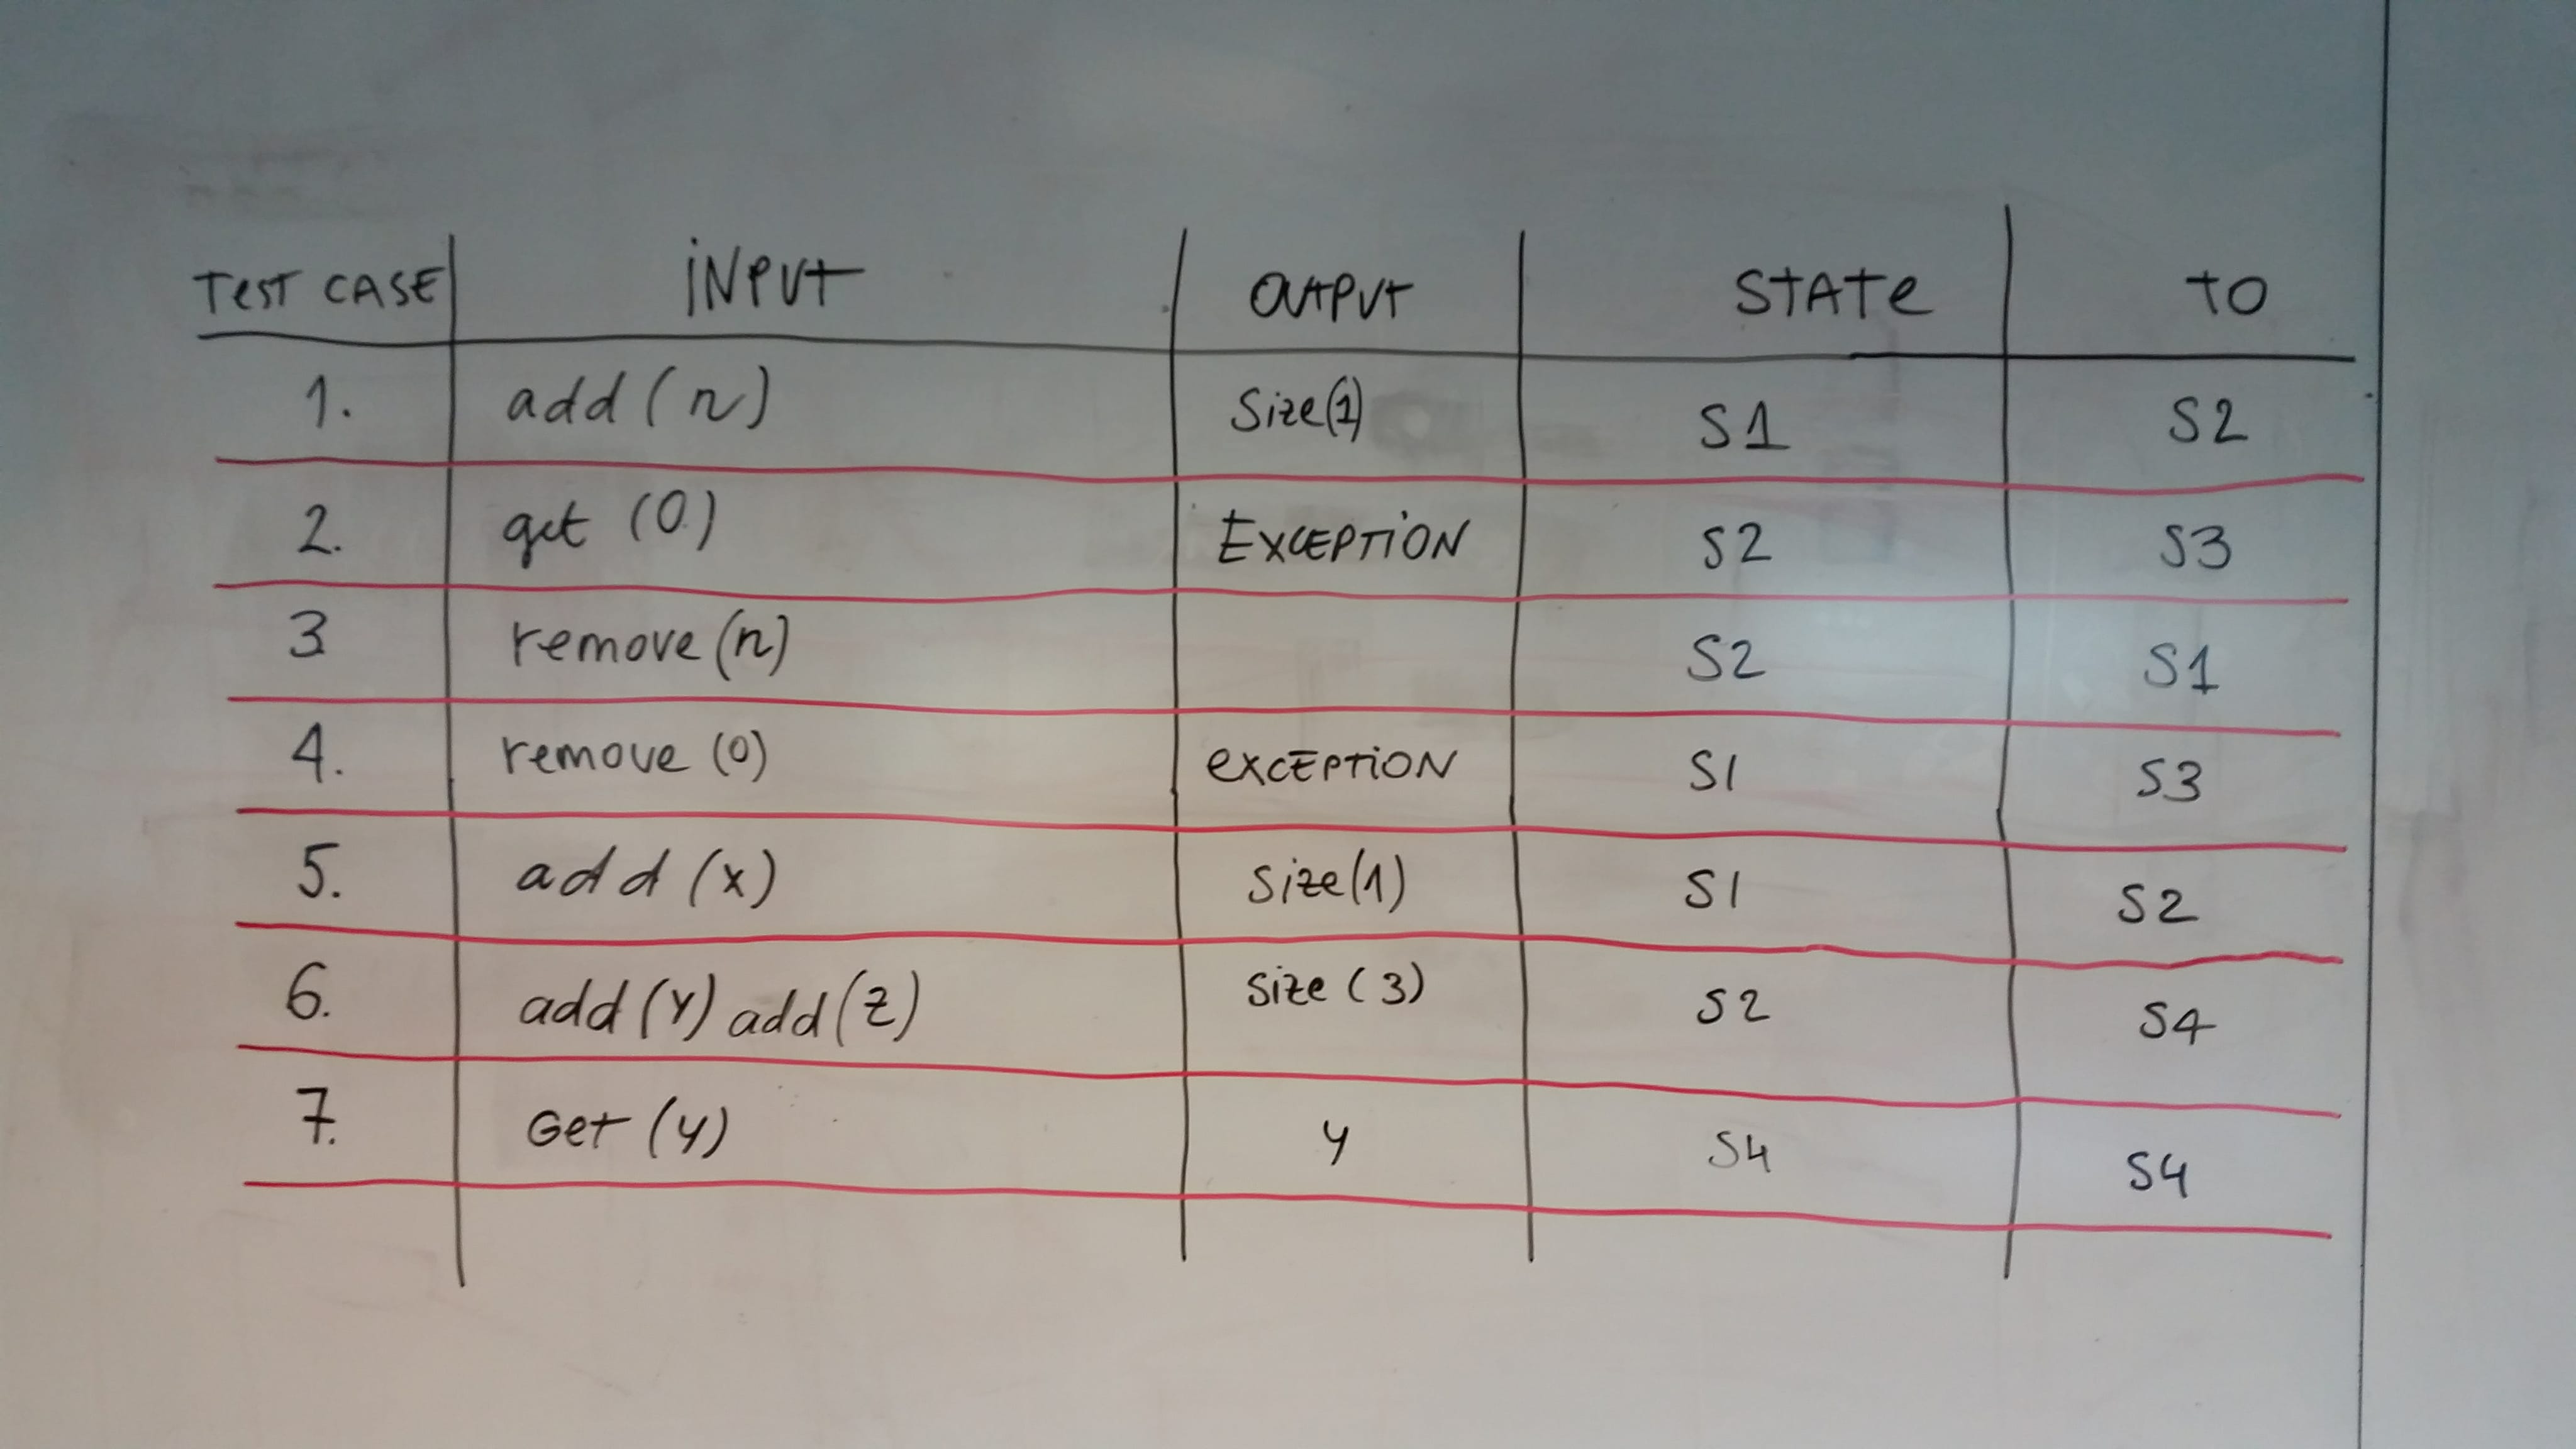 TEST CASE INPUT OUTPUT STATE TO
1. add(n) Size(1) S1 S2
2. get (0) EXCEPTION S2 S3
3 remove(n) S2 S1
4. remove (0) EXCEPTION S1 S3
5. add (x) Size(1) S1 S2
6. add (y) add (z) Size (3) S2 S4
7. Get (y) y S4 S4